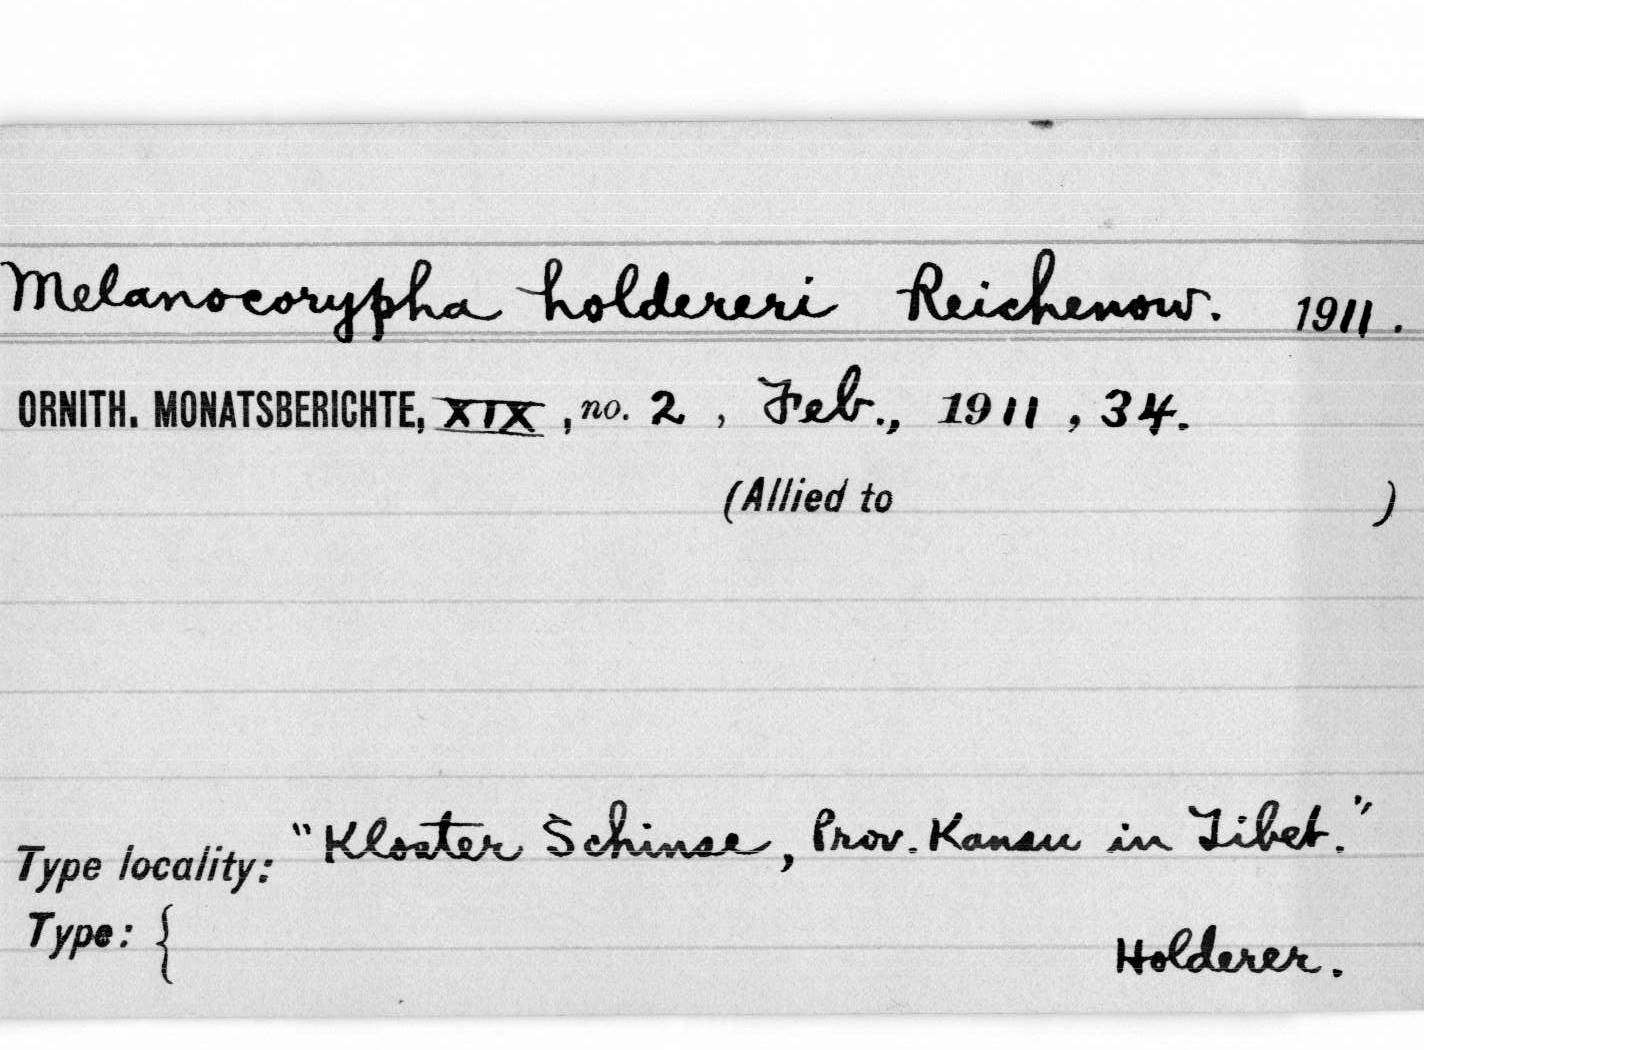 Melanocorypha holdereri Reichenow. 1911.
ORNITH. MONATSBERICHTE, XIX, no. 2, Feb., 1911, 34.
(Allied to )
Type locality: "Kloster Schinse, Prov. Kansu in Tibet."
Type: { Holderer.